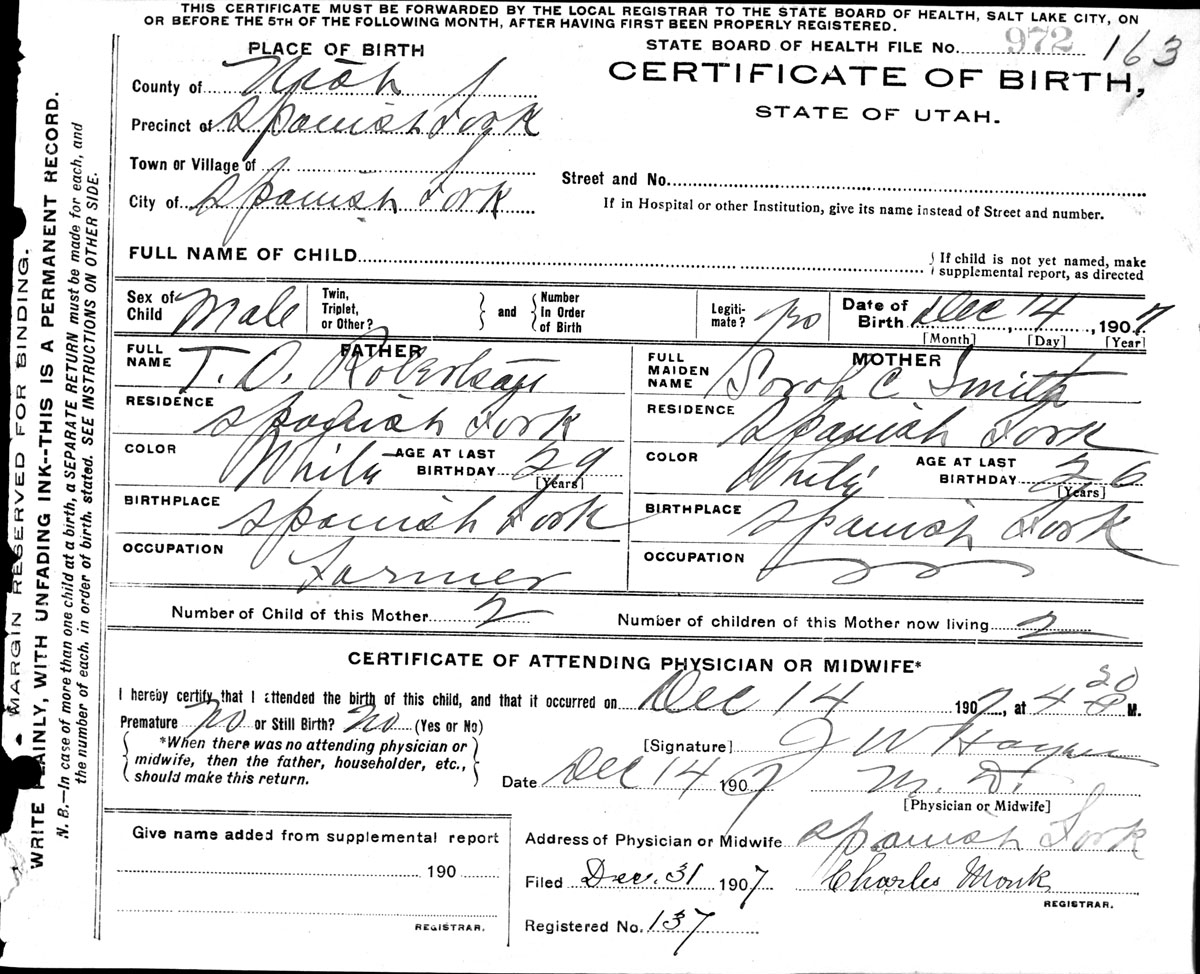 THIS CERTIFICATE MUST BE FORWARDED BY THE LOCAL REGISTRAR TO THE STATE BOARD OF HEALTH, SALT LAKE CITY, ON
OR BEFORE THE 5TH OF THE FOLLOWING MONTH, AFTER HAVING FIRST BEEN PROPERLY REGISTERED.
PLACE OF BIRTH
STATE BOARD OF HEALTH FILE No. 972 163
CERTIFICATE OF BIRTH,
STATE OF UTAH.
County of Utah
Precinct of Spanish Fork
Town or Village of
City of Spanish Fork
Street and No.
If in Hospital or other Institution, give its name instead of Street and number.
FULL NAME OF CHILD
If child is not yet named, make
supplemental report, as directed
Sex of Child Male
Twin, Triplet, or Other?
and
Number In Order of Birth
Legiti-mate?
Date of Birth Dec 14, 1907
[Month] [Day] [Year]
FATHER
FULL NAME T. O. Robertson
RESIDENCE Spanish Fork
COLOR White AGE AT LAST BIRTHDAY 29
[Years]
BIRTHPLACE Spanish Fork
OCCUPATION Farmer
MOTHER
FULL MAIDEN NAME Sarah C Smith
RESIDENCE Spanish Fork
COLOR White AGE AT LAST BIRTHDAY 26
[Years]
BIRTHPLACE Spanish Fork
OCCUPATION
Number of Child of this Mother 2 Number of children of this Mother now living 2
CERTIFICATE OF ATTENDING PHYSICIAN OR MIDWIFE*
I hereby certify that I attended the birth of this child, and that it occurred on Dec 14 1907, at 4 20 P M.
Premature No or Still Birth? No (Yes or No)
*When there was no attending physician or
midwife, then the father, householder, etc.,
should make this return.
[Signature] J W
Date Dec 14 1907 M. D.
[Physician or Midwife]
Give name added from supplemental report
190
REGISTRAR.
Address of Physician or Midwife Spanish Fork
Filed Dec. 31 1907 Charles Monk
REGISTRAR.
Registered No. 137
MARGIN RESERVED FOR BINDING.
WRITE PLAINLY, WITH UNFADING INK--THIS IS A PERMANENT RECORD.
N. B.—In case of more than one child at a birth, a SEPARATE RETURN must be made for each, and
the number of each, in order of birth, stated. SEE INSTRUCTIONS ON OTHER SIDE.